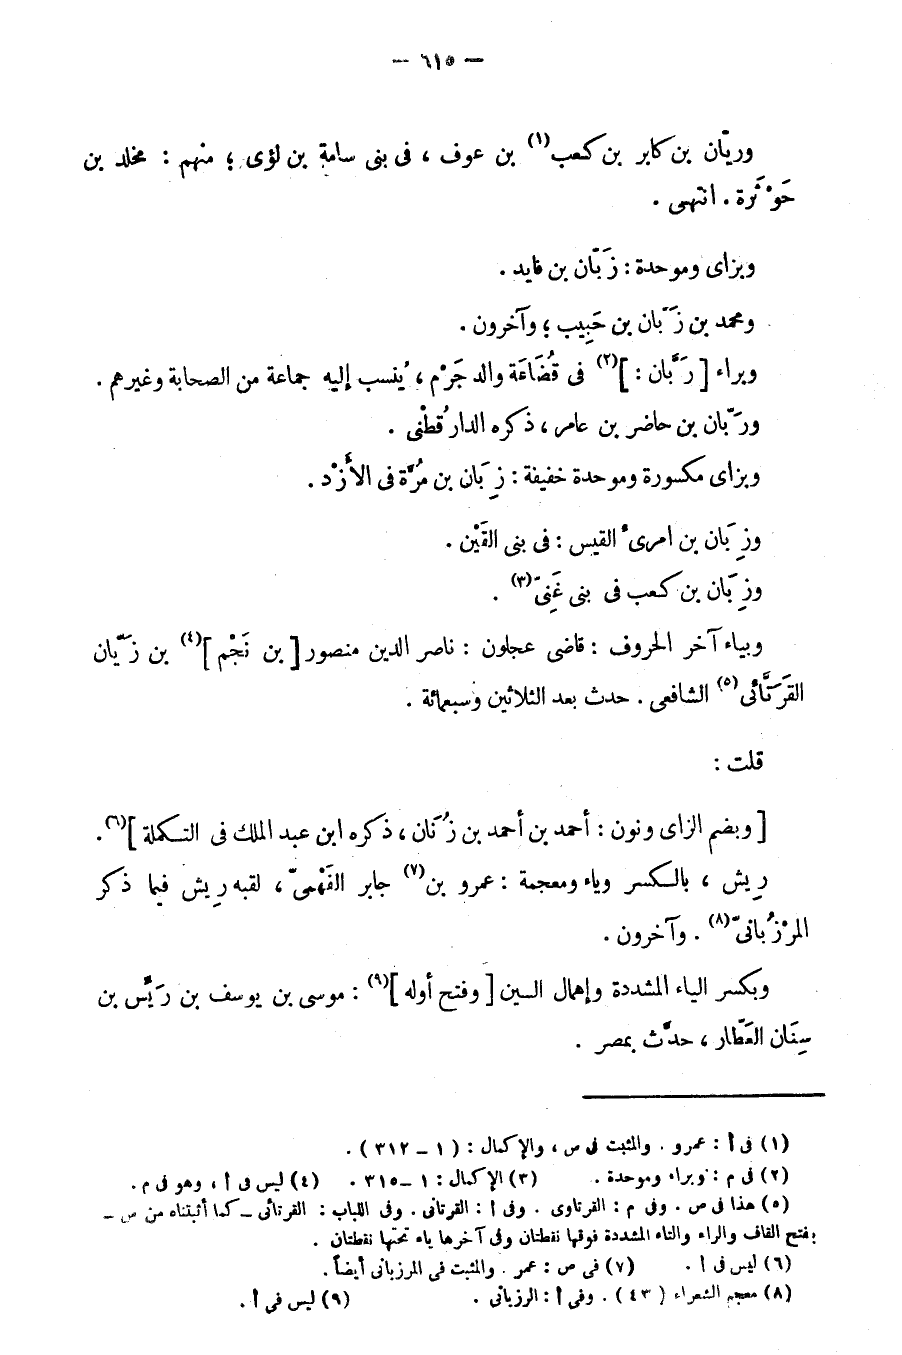 — ٦١٥ —
وريّان بن كابر بن كعب(١) بن عوف ، فى بنى سامة بن لؤى ؛ منهم : مخلد بن
حَوْثَرة . انتهى .
وبزاى وموحدة : زَبّان بن فايد .
ومحمد بن زَبّان بن حَبِيب ؛ وآخرون .
وبراء [ رَبَّان : ](٢) فى قُضَاعَة والد جَرْم ، يُنسب إليه جماعة من الصحابة وغيرهم .
ورَبّان بن حاضر بن عامر ، ذكره الدارُقطْنى .
وبزاى مكسورة وموحدة خفيفة : زِبَان بن مُرَّة فى الأَزْد .
وزِبَان بن امرىء القيس : فى بنى القَيْن .
وزِبَان بن كعب فى بنى غَنِىّ(٣) .
وبياء آخر الحروف : قاضى عجلون : ناصر الدين منصور [ بن نَجْم ](٤) بن زَيّان
القَرَتَّائى(٥) الشافعى . حدث بعد الثلاثين وسبعمائة .
قلت :
[ وبضم الزاى ونون : أحمد بن أحمد بن زُنَان ، ذكره ابن عبد الملك فى التكملة ](٦) .
رِيش ، بالكسر وياء ومعجمة : عمرو بن(٧) جابر الفَهْمىّ ، لقبه رِيش فيما ذكر
المرْزُبانىّ(٨) . وآخرون .
وبكسر الياء المشددة وإهمال السين [ وفتح أوله ](٩) : موسى بن يوسف بن رَيِّس بن
سِنَان العَطَّار ، حدَّث بمصر .
(١) فى أ : عمرو . والمثبت فى ص ، والإكمال : ( ١ – ٣١٢ ) .
(٢) فى م : وبراء وموحدة . (٣) الإكمال : ١ – ٣١٥ . (٤) ليس فى أ ، وهو فى م .
(٥) هذا فى ص . وفى م : القرتاوى . وفى أ : القرتانى . وفى اللباب : القرتائى – كما أثبتناه من س –
بفتح القاف والراء والتاء المشددة فوقها نقطتان وفى آخرها ياء تحتها نقطتان .
(٦) ليس فى أ . (٧) فى ص : عمر . والمثبت فى المرزبانى أيضاً .
(٨) معجم الشعراء ( ٤٣ ) . وفى أ : الرزبانى . (٩) ليس فى أ .